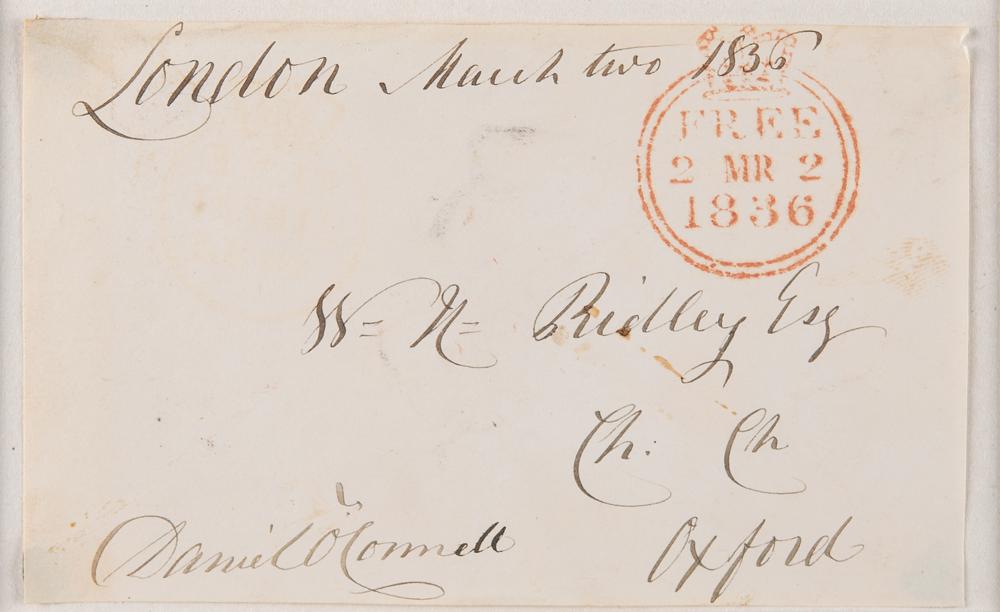 London March two 1836
FREE
2 MR 2
1836
W= N= Ridley Esq
Ch: Ch
Daniel O'Connell
Oxford